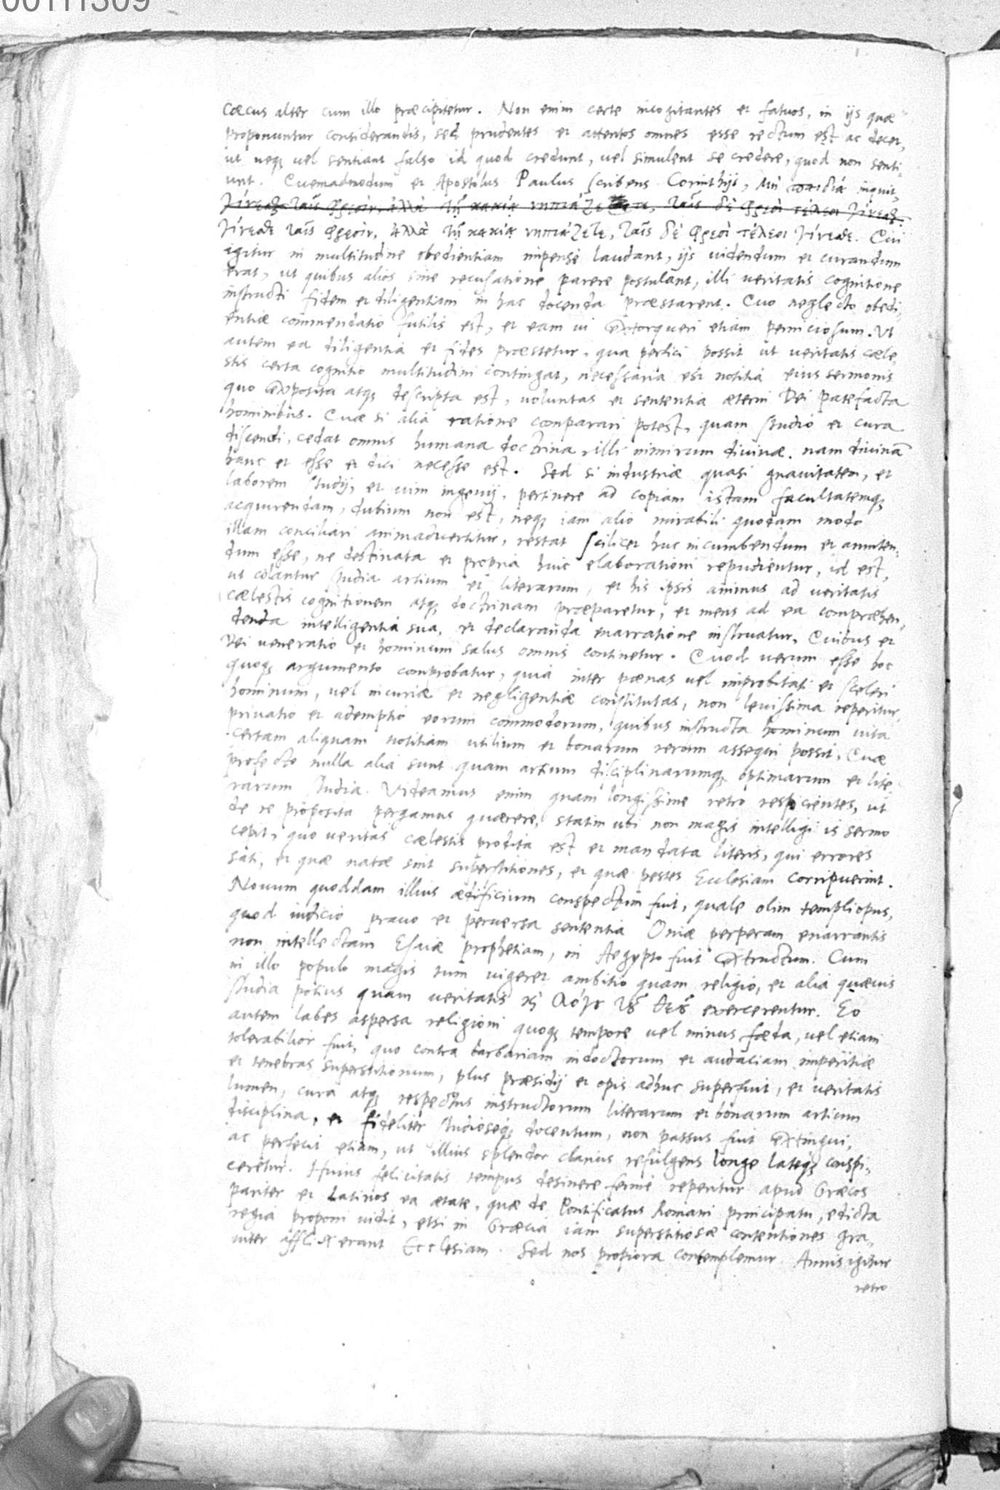 00111309
Cæcus alter cum illo præcipitetur. Non enim certe incogitantes et fatuos, in ijs quæ
proponuntur considerandis, sed prudentes et attentos omnes esse rectum est ac decet,
ut neq; vel sentiant falso id quod credunt, vel simulent se credere, quod non senti-
unt. Quemadmodum et Apostolus Paulus scribens Corinthijs, μὴ παιδία inquit,
γίνεσθε ταῖς φρεσὶν, ἀλλὰ τῇ κακίᾳ νηπιάζετε, ταῖς δὲ φρεσὶ τέλειοι γίνεσθε.
γίνεσθε ταῖς φρεσὶν, ἀλλὰ τῇ κακίᾳ νηπιάζετε, ταῖς δὲ φρεσὶ τέλειοι γίνεσθε. Qui
igitur in multitudine obedientiam impense laudant, ijs videndum et curandum
erat, ut quibus alios sine recusatione parere postulant, illi veritatis cognitione
instructi fidem et diligentiam in hac docenda præstarent. Quo neglecto obedi
entiæ commendatio futilis est, et eam vi extorqueri etiam perniciosum. Ut
autem ea diligentia et fides præstetur, qua perfici possit ut veritatis cæle
stis certa cognitio multitudini contingat, necessaria est notitia eius sermonis
quo exposita atq; descripta est, voluntas et sententia æterni Dei patefacta
hominibus. Quæ si alia ratione comparari potest, quam studio et cura
discendi, cedat omnis humana doctrina, illi nimirum divinæ. nam divinā
hanc et esse et dici necesse est. Sed si industriæ quasi gnavitatem, et
laborem studij, et vim ingenij, pertinere ad copiam istam facultatemq;
acquirendam, dubium non est, neq; iam alio mirabili quodam modo
illam conciliari animadvertitur, restat scilicet huc incumbendum et anniten-
dum esse, ne destinata et propria huic elaborationi repudientur, id est,
ut colantur studia artium et literarum, et his ipsis animus ad veritatis
cælestis cognitionem atq; doctrinam præparetur, et mens ad ea compræhen-
denda intelligentia sua, et declaranda enarratione instruatur. Quibus et
Dei veneratio et hominum salus omnis continetur. Quod verum esse hoc
quoq; argumento comprobatur, quia inter pœnas vel improbitati et sceleri
hominum, vel incuriæ et negligentiæ constitutas, non levissima reperitur
privatio et ademptio eorum commodorum, quibus instructa hominum vita
certam aliquam notitiam utilium et bonarum rerum assequi possit. Quæ
profecto nulla alia sunt quam artium disciplinarumq; optimarum et lite-
rarum studia. Videamus enim quam longissime retro respicientes, ut
de re proposita pergamus quærere, statim ubi non magis intelligi is sermo
cepit, quo veritas cælestis prodita est et mandata literis, qui errores
sati, et quæ natæ sint superstitiones, et quæ pestes Ecclesiam corripuerint.
Novum quoddam illius ædificium conspectum fuit, quale olim templi opus,
quod iudicio pravo et perversa sententia Oniæ perperam enarrantis
non intellectam Esaiæ prophetiam, in Aegypto fuit extructum. Cum
in illo populo magis tum vigeret ambitio quam religio, et alia quævis
studia potius quam veritatis καὶ λόγου τοῦ θεοῦ exercerentur. Eo
autem labes aspersa religioni quoq; tempore vel minus fœda, vel etiam
tolerabilior fuit, quo contra barbariam indoctorum et audaciam imperitiæ
et tenebras superstitionum, plus præsidij et opis adhuc superfuit, et veritatis
lumen, cura atq; respectus instructorum literarum et bonarum artium
disciplina, et fideliter studioseq; docentum, non passus fuit extingui,
ac perfecit etiam, ut illius splendor clarius refulgens longe lateq; conspi-
ceretur. Huius felicitatis tempus desinere ferme reperitur apud Græcos
pariter et Latinos ea ætate, quæ de Pontificatus Romani principatu, edicta
regia proponi vidit, etsi in Græcia iam superstitiosæ contentiones gra-
viter afflixerant Ecclesiam. Sed nos propiora contemplemur. Annis igitur
retro